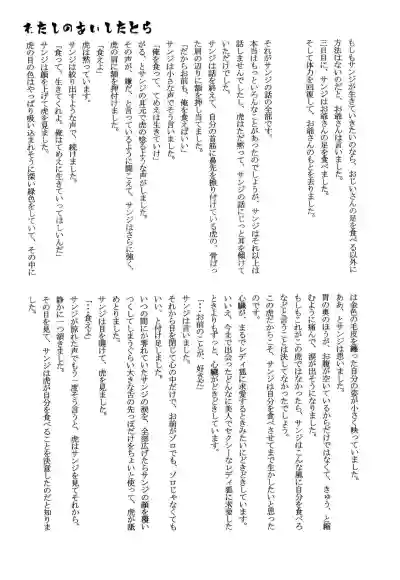 わたしのあいしたとら
もしもサンジが生きていきたいのなら、おじいさんの足を食べる以外に
方法はないのだと、お爺さんは言いました。
三日目に、サンジはお爺さんの足を食べました。
そして体力を回復して、お爺さんのもとを去りました。
それがサンジの話の全部です。
本当はもっといろんなことがあったのでしょうが、サンジはそれ以上は
話しませんでしたし、虎はただ黙って、サンジの話にじっと耳を傾けて
いただけでした。
サンジは話を終えて、自分の首筋に鼻先を擦り付けている虎の、骨ばっ
た肩の辺りに額を押し当てました。
「だからお前も、俺を食えばいい」
サンジは小さな声でそう言いました。
「俺を、食って、てめえは生きていけ」
がる、とサンジの耳元で虎の唸るような声がしました。
その声が、嫌だ、と言っているように聞こえて、サンジはさらに強く、
虎の肩に額を押付けました。
「食えよ」
虎は黙っています。
サンジは絞り出すような声で、続けました。
「食って、生きてくれよ。俺はてめえに生きていってほしいんだ」
サンジは顔を上げて虎を見ました。
虎の目の色はやっぱり吸い込まれそうに深い緑色をしていて、その中に
は金色の毛皮を纏った自分の姿が小さく映っていました。
ああ、とサンジは思いました。
胃の奥のほうが、お腹が空いているからだけではなくて、きゅう、と縮
むように痛んで、涙が出そうになりました。
もしもこれがこの虎ではなかったなら、サンジはこんな風に自分を食べろ
などと言うことは決してなかったでしょう。
この虎だからこそ、サンジは自分を食べさせてまで生かしたいと思った
のです。
心臓が、まるでレディ狐に求愛するときみたいにどきどきしています。
いいえ、今まで出会ったどんなに美人でセクシーなレディ狐に求愛した
ときよりもずっと、心臓がどきどきしています。
「…お前のことが、好きだ」
サンジは言いました。
それから目を閉じて心の中でだけ、お前がゾロでも、ゾロじゃなくても
いい、と付け足しました。
いつの間にか零れていたサンジの涙を、全部広げたらサンジの顔を覆い
つくしてしまうぐらい大きな舌の先っぽだけをちょいと使って、虎が舐
めとりました。
サンジは目を開けて、虎を見ました。
「…食えよ」
サンジが掠れた声でもう一度そう言うと、虎はサンジを見てそれから、
静かに一つ頷きました。
その目を見て、サンジは虎が自分を食べることを決意したのだと知りま
した。